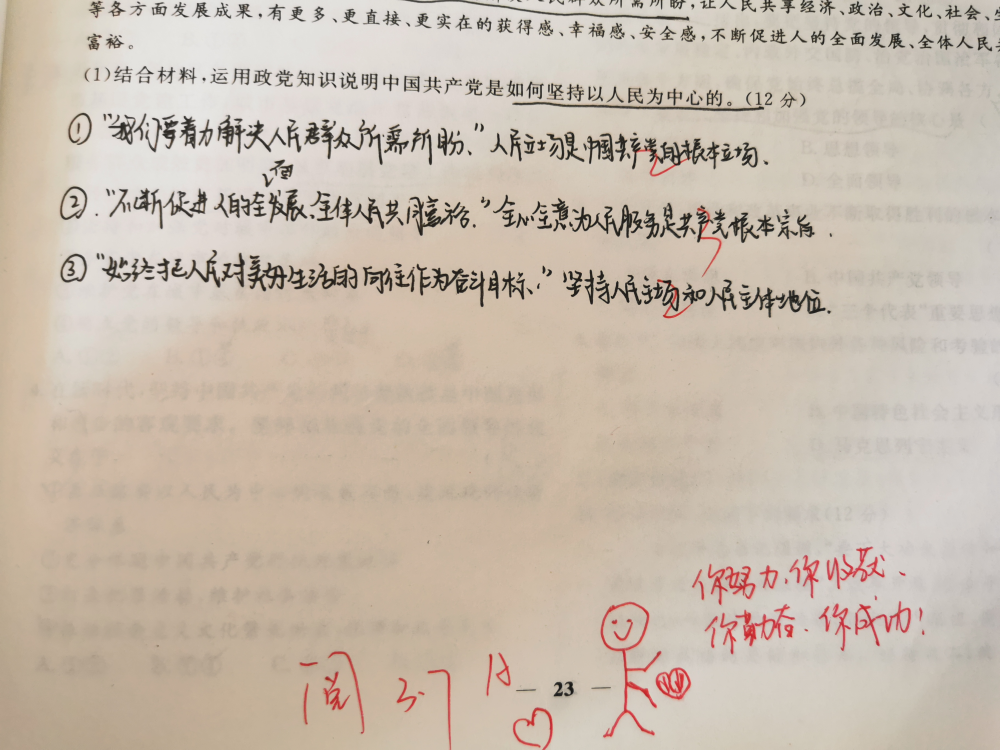 等各方面发展成果,有更多、更直接、更实在的获得感、幸福感、安全感,不断促进人的全面发展、全体人民共
富裕。
(1)结合材料,运用政党知识说明中国共产党是如何坚持以人民为中心的。(12分)
①“我们要着力解决人民群众所需所盼.”人民立场是中国共产党的根本立场.
②.“不断促进人的全面发展、全体人民共同富裕.”全心全意为人民服务是共产党根本宗旨.
③“始终把人民对美好生活的向往作为奋斗目标.”坚持人民立场和人民主体地位.
你努力,你收获、
你勤奋.你成功!
阅 3.7 A
— 23 —